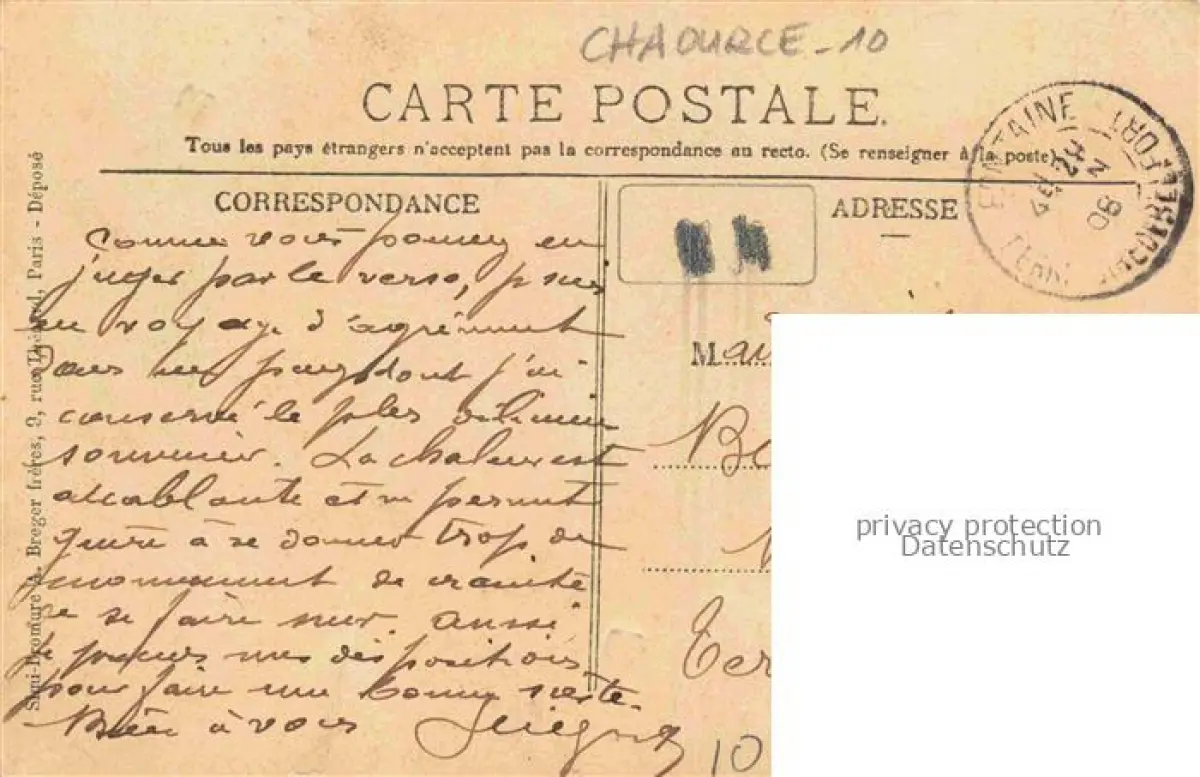 CHAOURCE - 10
CARTE POSTALE.
Tous les pays étrangers n'acceptent pas la correspondance au recto. (Se renseigner à la poste)
CORRESPONDANCE
ADRESSE
FONTAINE
Comme vous pouvez en
juger par le verso, je suis
en voyage d'agrément
dans un pays dont j'ai
conservé le plus
souvenir. La chaleur est
accablante et ne permet
guère à se donner trop de
mouvement de crainte
de se faire suer. aussi
je prends mes dispositions
pour faire une bonne sieste.
Bien à vous
M
Ter
10
Breger frères, 9, rue Thénard, Paris - Déposé
privacy protection
Datenschutz